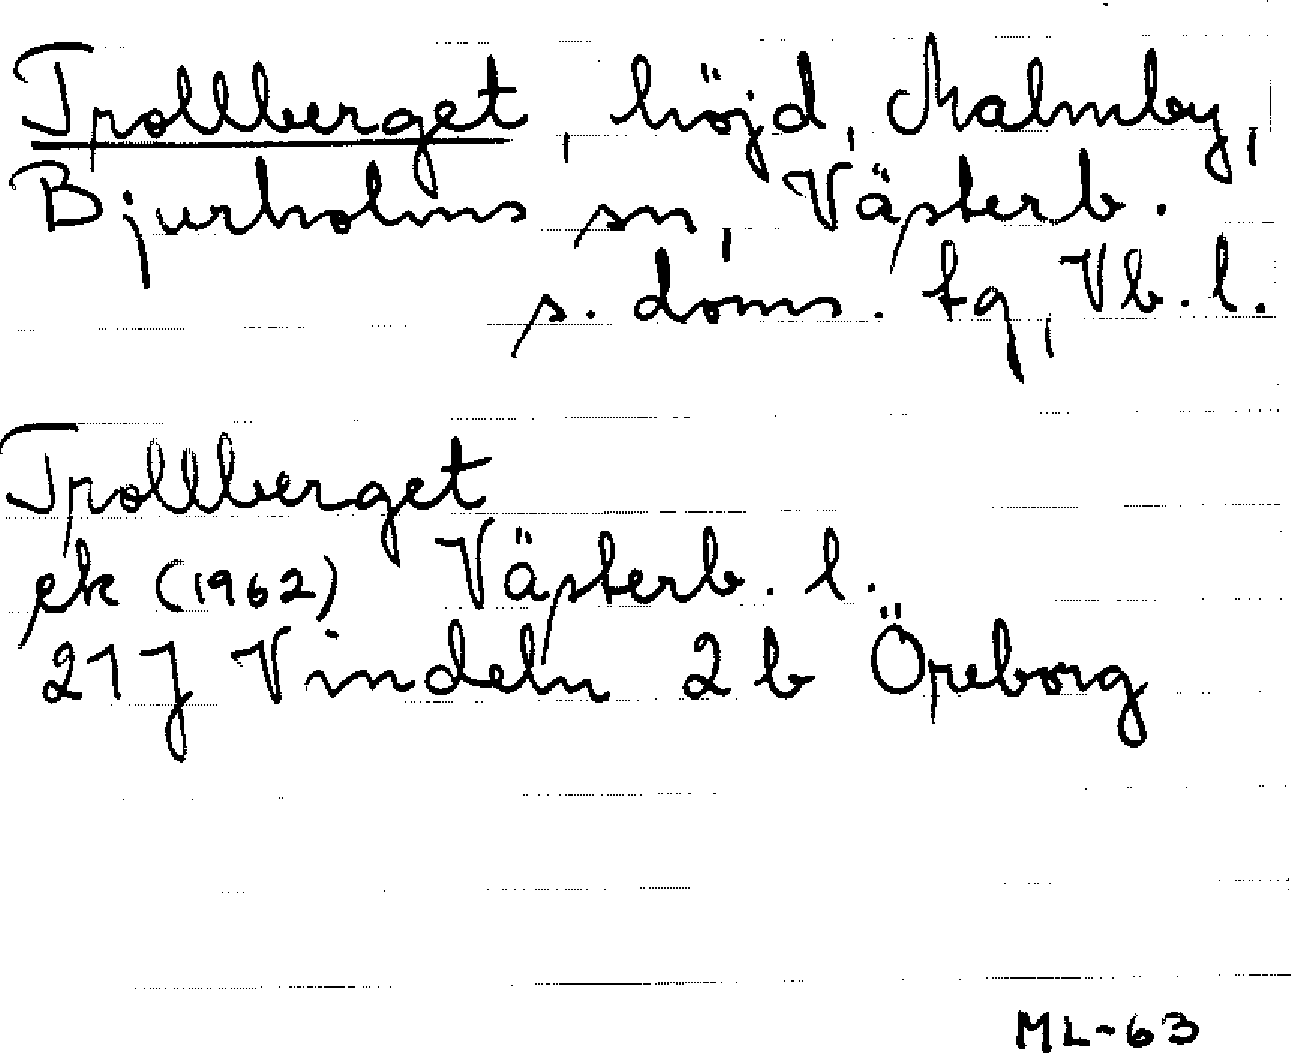 Trollberget, höjd, Malmby,
Bjurholms sn, Västerb.
s. doms. tg, Vb. l.
Trollberget
ek (1962) Västerb. l.
21 J Vindeln 2 b Öreborg
ML-63